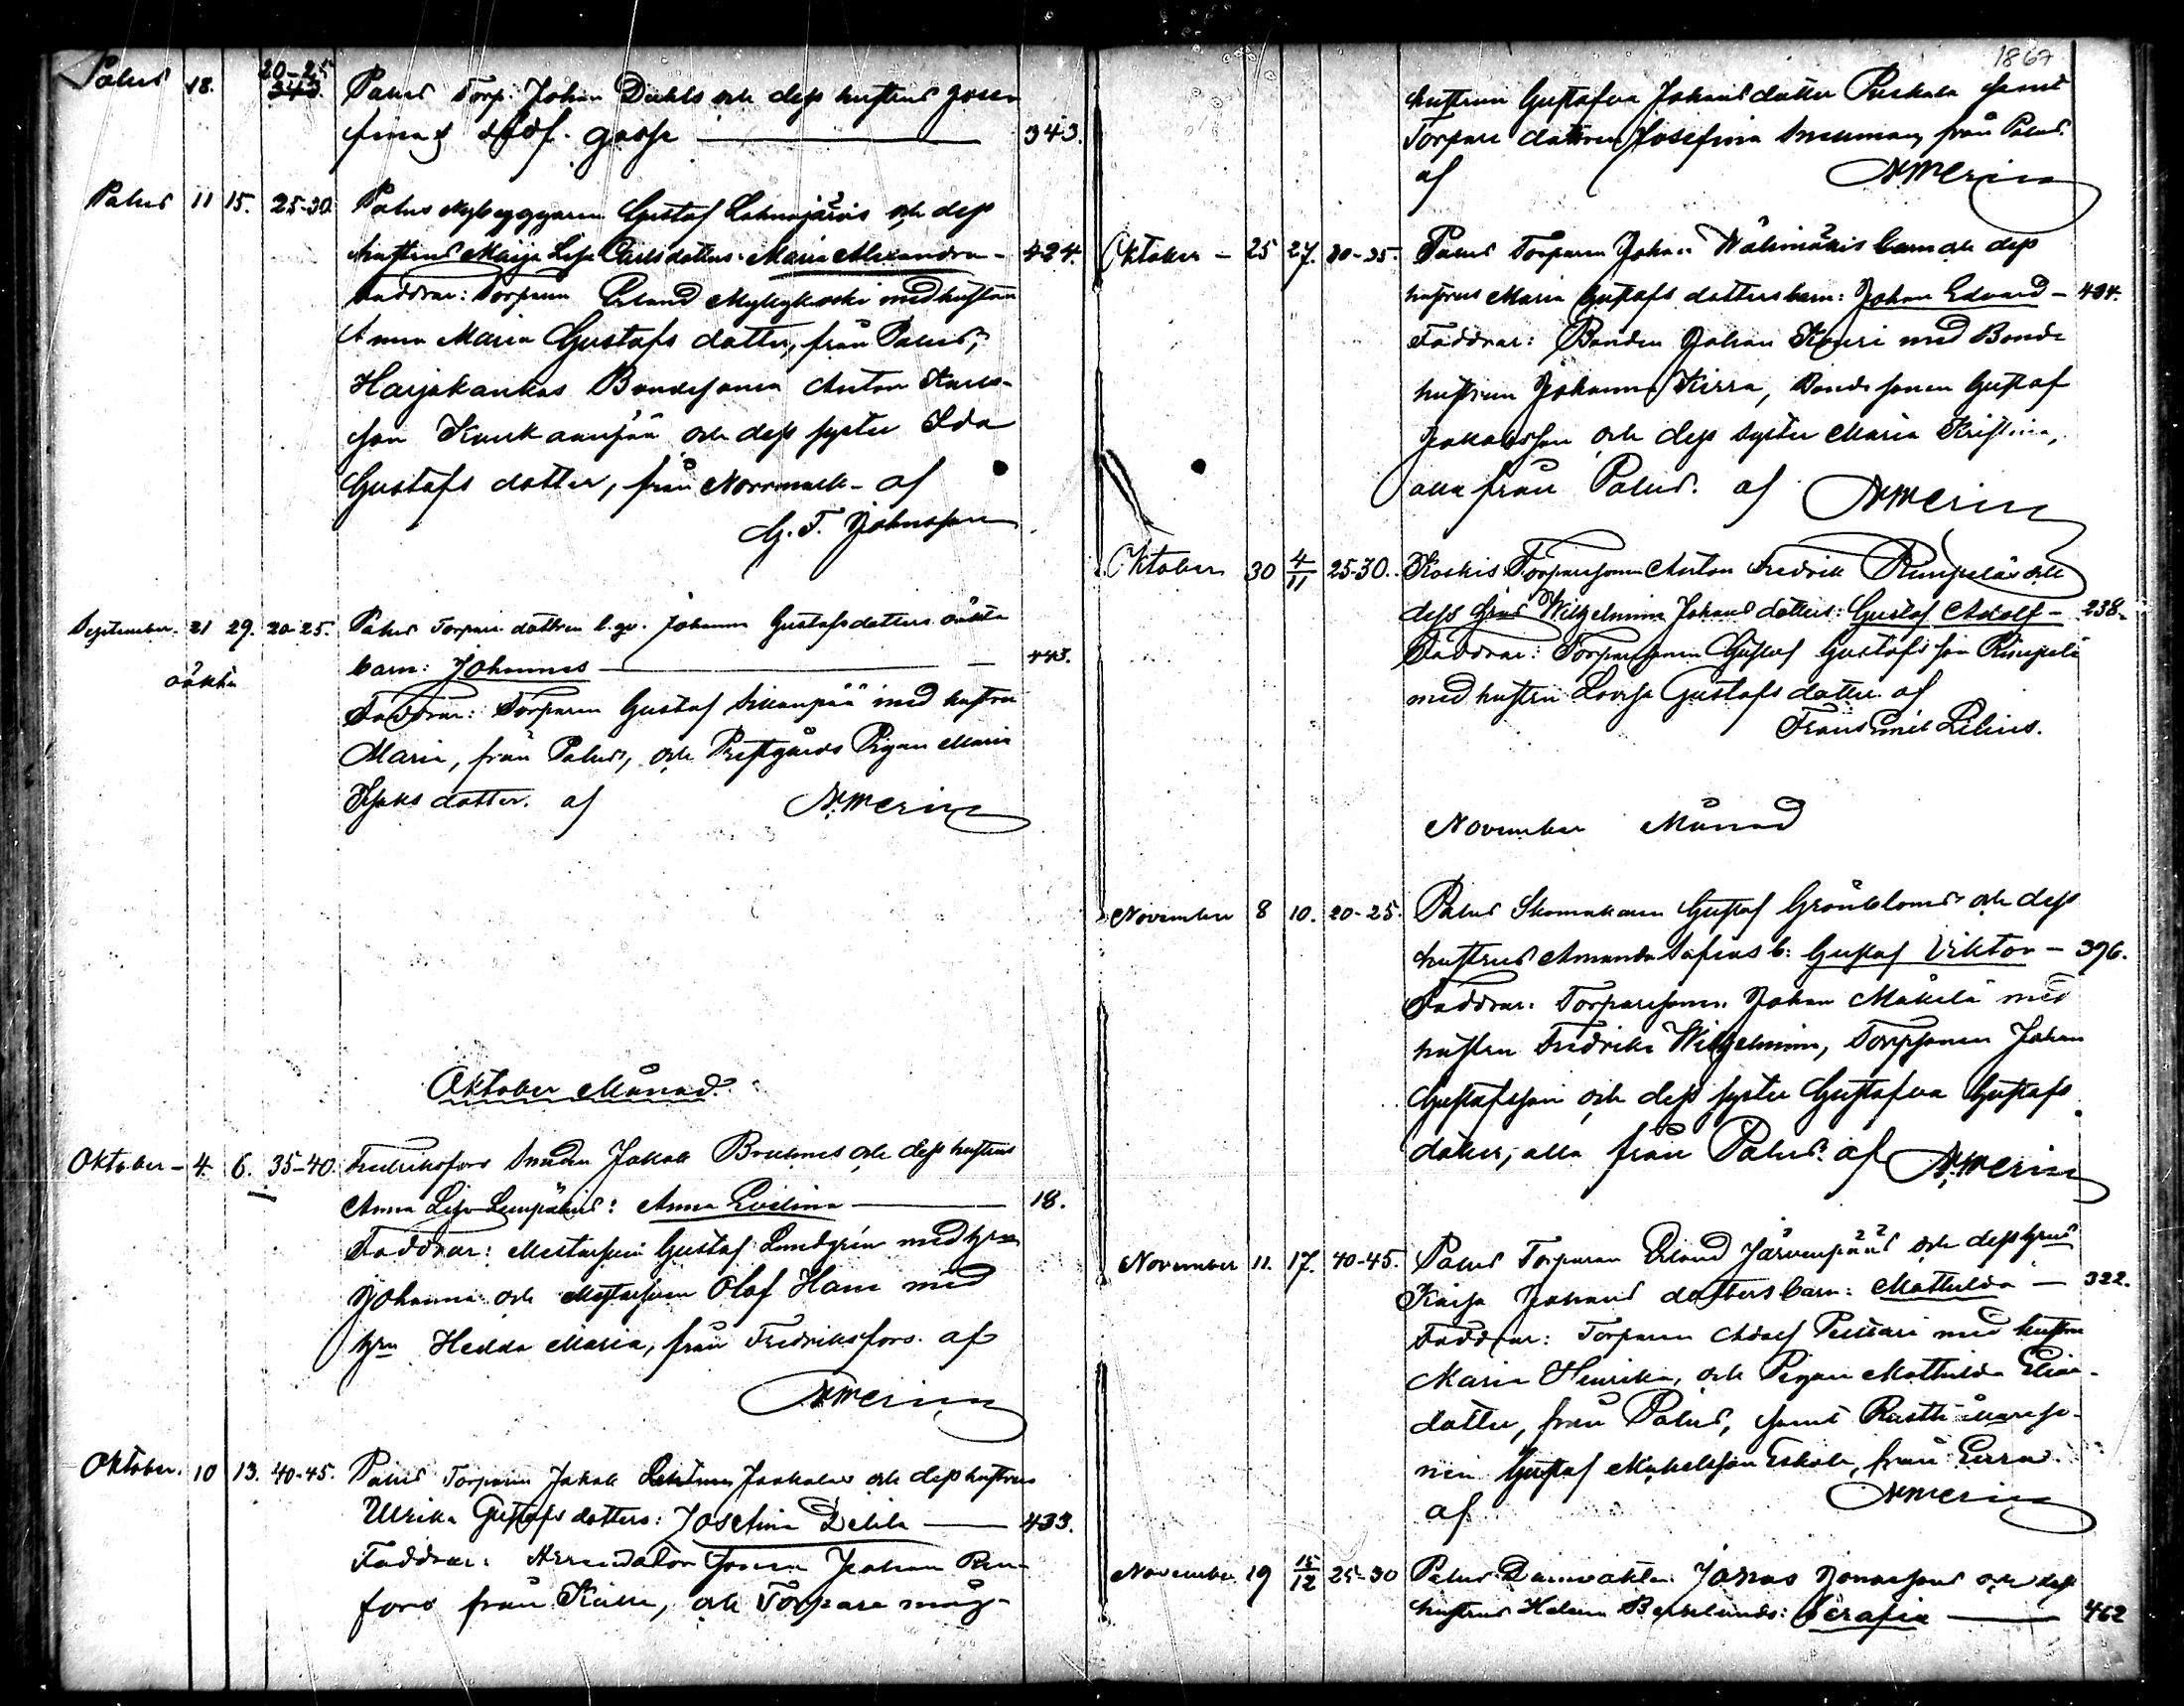 Palus 18. 20-25 343. Palus Torp. Johan Dahls och dess hustrus Jose
finas dödf. gosse — 343.
Palus 11 15. 25-30. Palus Nybyggaren Gustaf Lahnajärvis och dess
hustrus Maija Lisa Carlsdotters: Maria Alexandra - 424.
Faddrar: Torparen Erland Myllykoski med hustrun
Anna Maria Gustafs dotter, från Palus,
Harjakankas Bondesonen Anton Karls-
son och dess syster Ida
Gustafs dotter, från Norrmark - af
G. F. Johnsson
September. 21 29. 20-25. Palus Torpare dottren l.qv. Johanna Gustafsdotters oäkta
oäkta barn: Johannes — 443.
Faddrar: Torparen Gustaf Sillanpää med hustru
Maria, från Palus, och Prestgårds Pigan Maria
Isaks dotter. af A. Merin
Oktober Månad.
Oktober - 4. 6. 35-40. Fredriksfors Smeden Jakob och dess hustrus
Anna Lisa : Anna Evelina — 18.
Faddrar: Mestarsven Gustaf Lundgren med hrn
Johanna och Mestarsven Olof Hane med
hrn Hedda Maria, från Fredriksfors. af
A. Merin
Oktober. 10 13. 40-45. Palus Torparen Jakob Jaakolas och dess hustrus
Ulrika Gustafs dotters: Josefina Delila — 433.
Faddrar: Arrendator sonen Johan Ren-
fors från , och Torpare måg-
1867
hustrun Gustafva Johansdotter Puskala samt
Torpare dottren Josefina , från Palus.
af A. Merin
Oktober - 25 27. 30-35. Palus Torparen Johan Wälimäkis barn och dess
hustrus Maria Gustafs dotters barn: Johan Edvard - 434.
Faddrar: Bonden Johan Kouri med Bonde
hustrun Johanna , Bondesonen Gustaf
Jakobsson och dess syster Maria Kristina,
alla från Palus. af A. Merin
Oktober 30 4/11 25-30. Koskis Torparesonen Anton Fredrik Rimpeläs och
dess hrus Wilhelmina Johans dotters: Gustaf Adolf - 238.
Faddrar: Torparesonen Gustaf Gustafs son Rimpelä
med hustru Lovisa Gustafs dotter. af
Frans Emil Lilius.
November Månad
November 8 10. 20-25. Palus Skomakaren Gustaf Grönbloms och dess
hustrus Amanda Sofias b: Gustaf Viktor - 396.
Faddrar: Torparesonen Johan Mäkelä med
hustru Fredrika Wilhelmina, Torpsonen Johan
Gustafsson och dess syster Gustafva Gustafs
dotter, alla från Palus. af A. Merin
November 11. 17. 40-45. Palus Torparen Erland Järvenpääs och dess hrus
Kaisa Johans dotters barn: Mathilda - 322.
Faddrar: Torparen Adolf med hustru
Maria Henrika, och Pigan Mathilda Elias-
dotter, från Palus, samt Rusthållareso-
nen Gustaf Mikelsson Eskola, från Eura.
af A. Merin
November 19 15/12 25-30 Palus Damvakten Jonas Jonassons och dess
hustrus Helena Berklunds: Serafia — 462